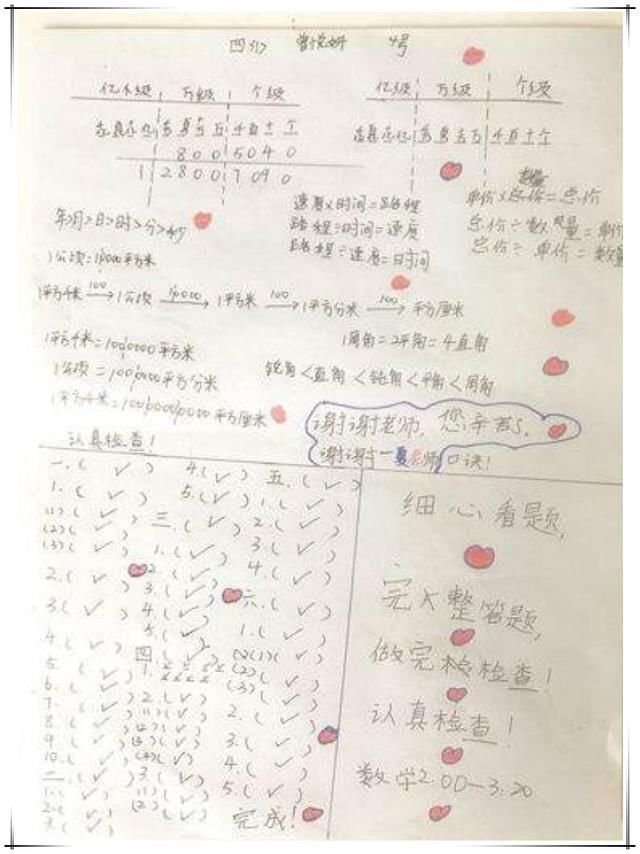 四(1) 4号
亿级 万级 个级
亿级 万级 个级
千百十个
千百十个
800 5040
1 2800 7090
速度×时间=路程
路程÷时间=速度
路程÷速度=时间
单价×总价=总价
总价÷数量=单价
总价÷单价=数量
年>月>日>时>分>秒
1公顷=10000平方米
1平方千米 100 1公顷 10000 1平方米 100 1平方分米 100 平方厘米
1周角=2平角=4直角
1平方千米=1000000平方米
1公顷=1000000平方分米
锐角<直角<钝角<平角<周角
1平方千米=10000000000平方厘米
谢谢老师,您辛苦了,
谢谢 老师口诀!
认真检查!
一.( ✓ )
1.( ✓ )
(1)( ✓ )
(2)( ✓ )
(3)( ✓ )
2.( ✓ )
3.( ✓ )
4.( ✓ )
5.( ✓ )
6.( ✓ )
7.( ✓ )
8.( ✓ )
9.( ✓ )
10.( ✓ )
二.( ✓ )
1.( ✓ )
2.( ✓ )
3.( ✓ )
4.( ✓ )
5.( ✓ )
三.( ✓ )
1.( ✓ )
2.( ✓ )
3.( ✓ )
4.( ✓ )
5.( ✓ )
四( ✓ )
1.
2.( ✓ )
(1)( ✓ )
(2)( ✓ )
(3)( ✓ )
(4)( ✓ )
3.( ✓ )
(1)( ✓ )
(2)( ✓ )
五.( ✓ )
1.( ✓ )
2.( ✓ )
3.( ✓ )
4.( ✓ )
六.( ✓ )
1.( ✓ )
(1)( ✓ )
(2)( ✓ )
(3)( ✓ )
2.( ✓ )
3.( ✓ )
4.( ✓ )
5.( ✓ )
完成!
细心看题,
完整答题,
做完检检查!
认真检查!
数学2:00—3:20